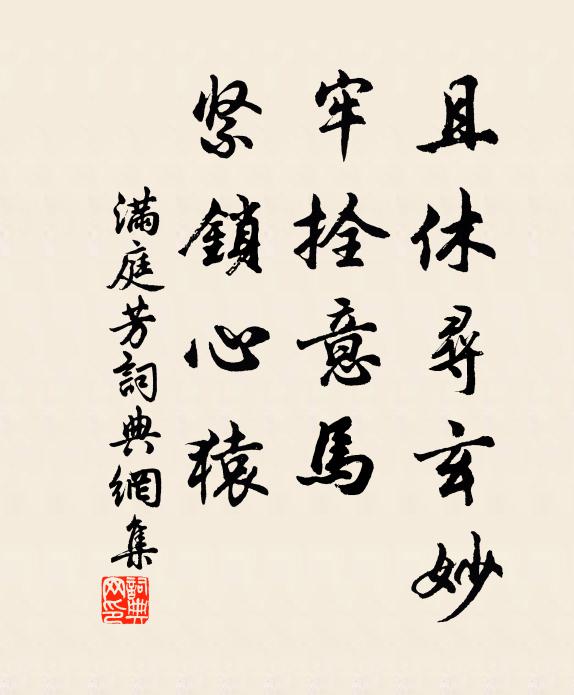 且休尋玄妙
牢拴意馬
緊鎖心猿
滿庭芳詞典網集
詞典网印